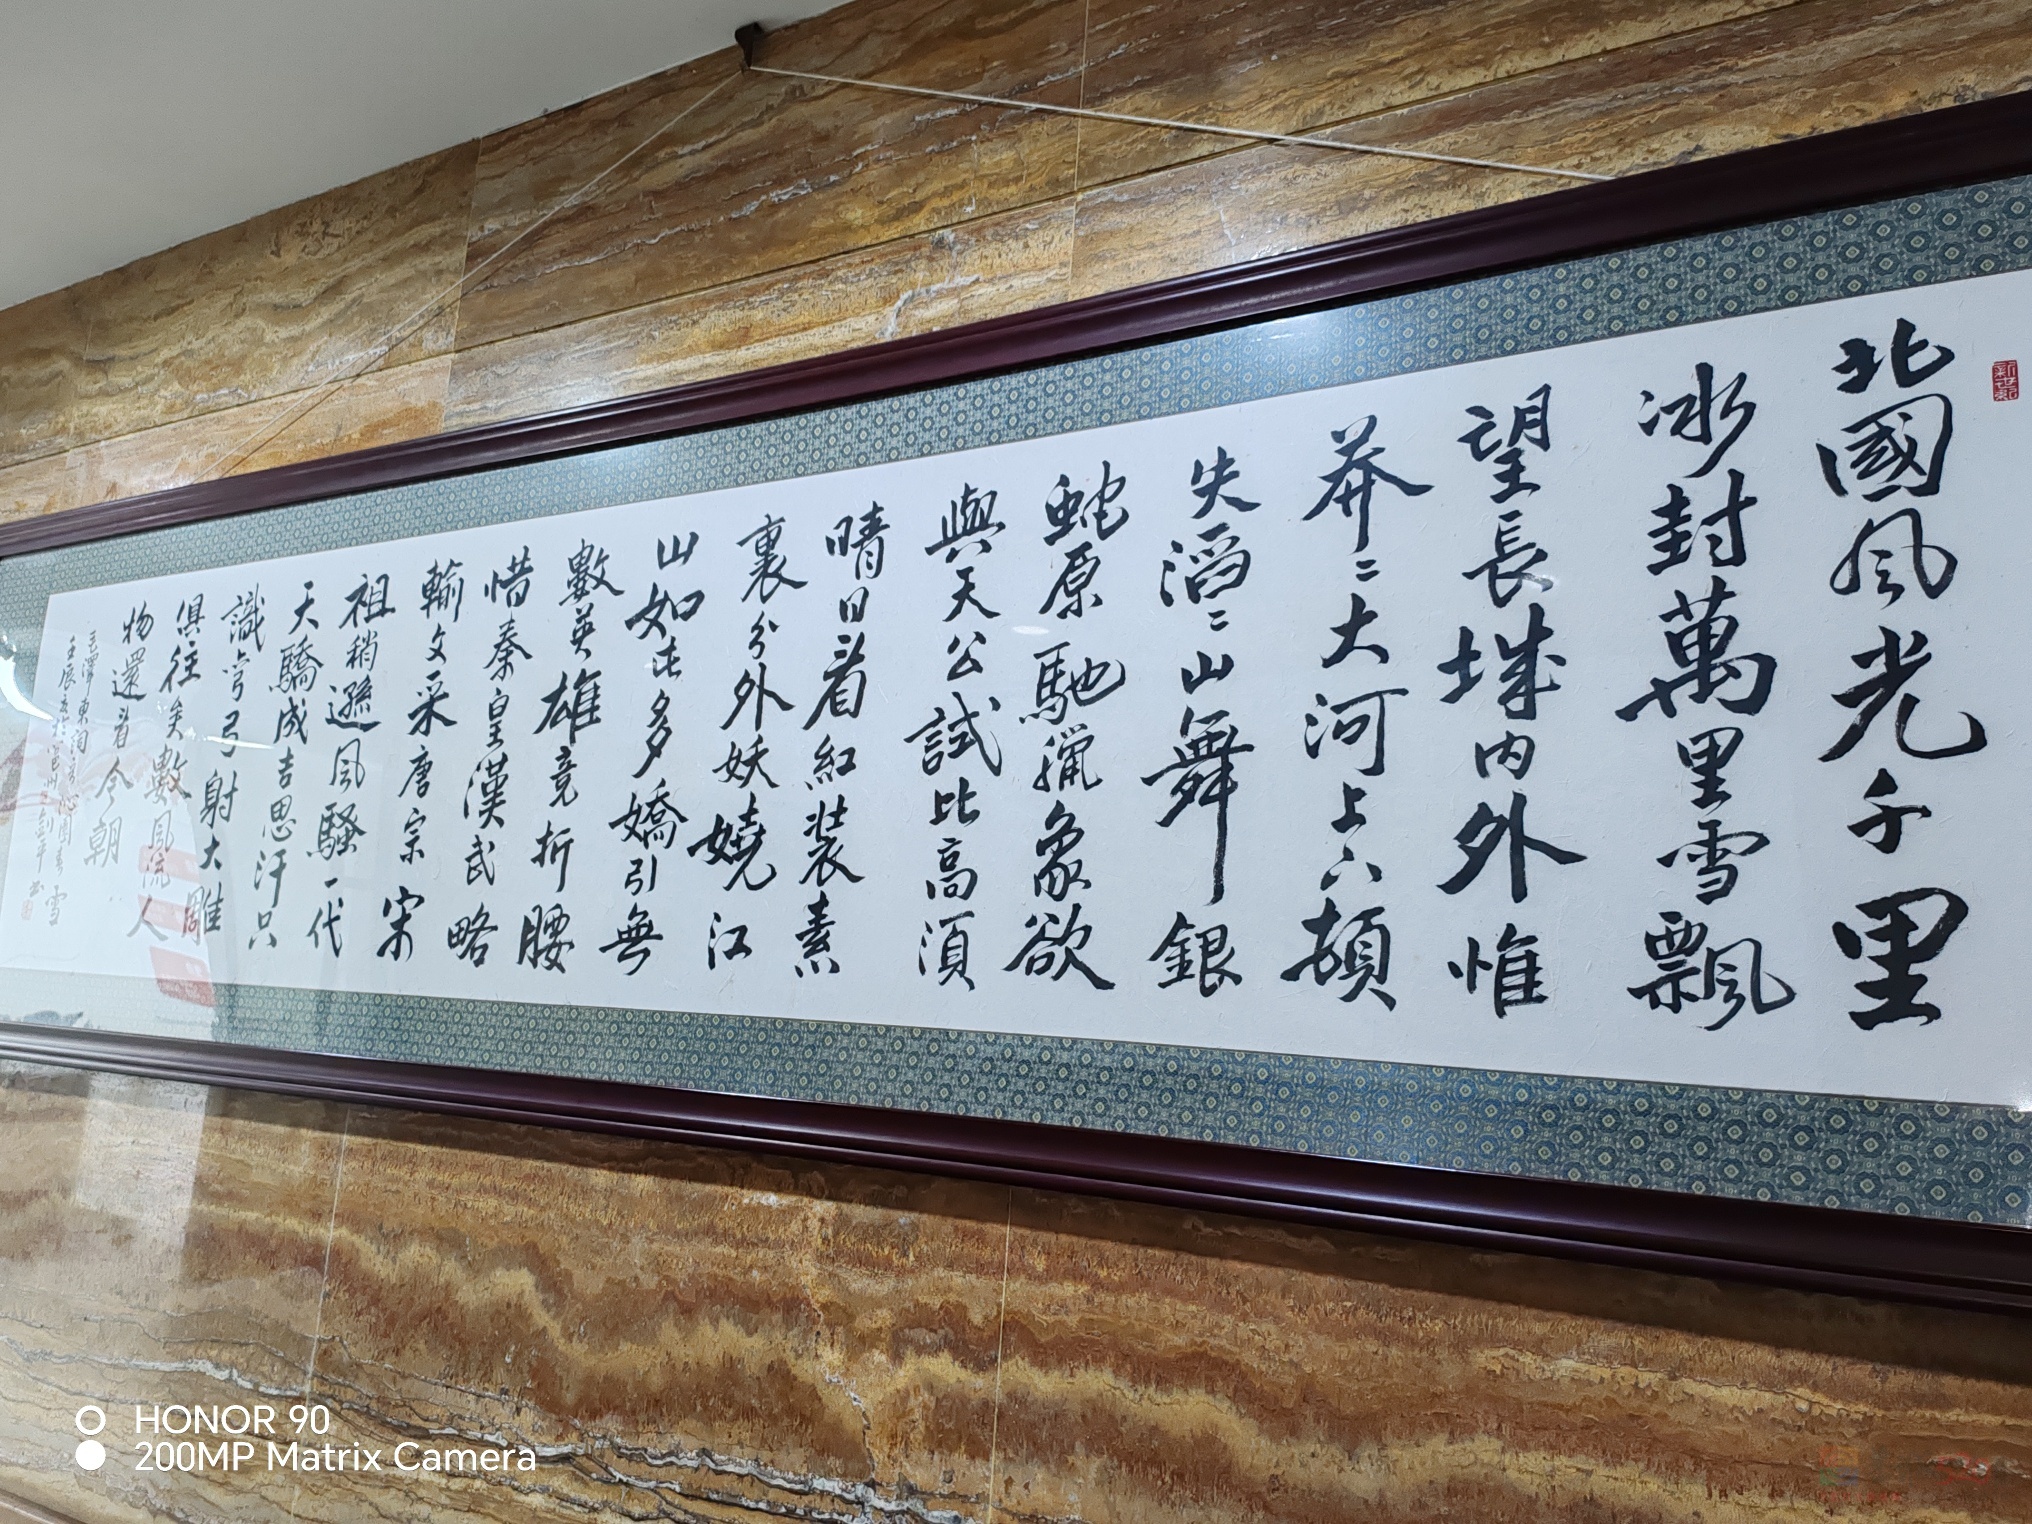 北國風光千里
冰封萬里雪飄
望長城内外惟
莽〻大河上下頓
失滔〻山舞銀
蛇原馳獵象欲
與天公試比高須
晴日看紅装素
裹分外妖嬈江
山如此多嬌引無
數英雄竞折腰
惜秦皇漢武略
輸文采唐宗宋
祖稍遜風騷一代
天驕成吉思汗只
識彎弓射大雕
俱往矣數風流人
物還看今朝
毛澤東詞沁園春雪
壬辰
HONOR 90
200MP Matrix Camera